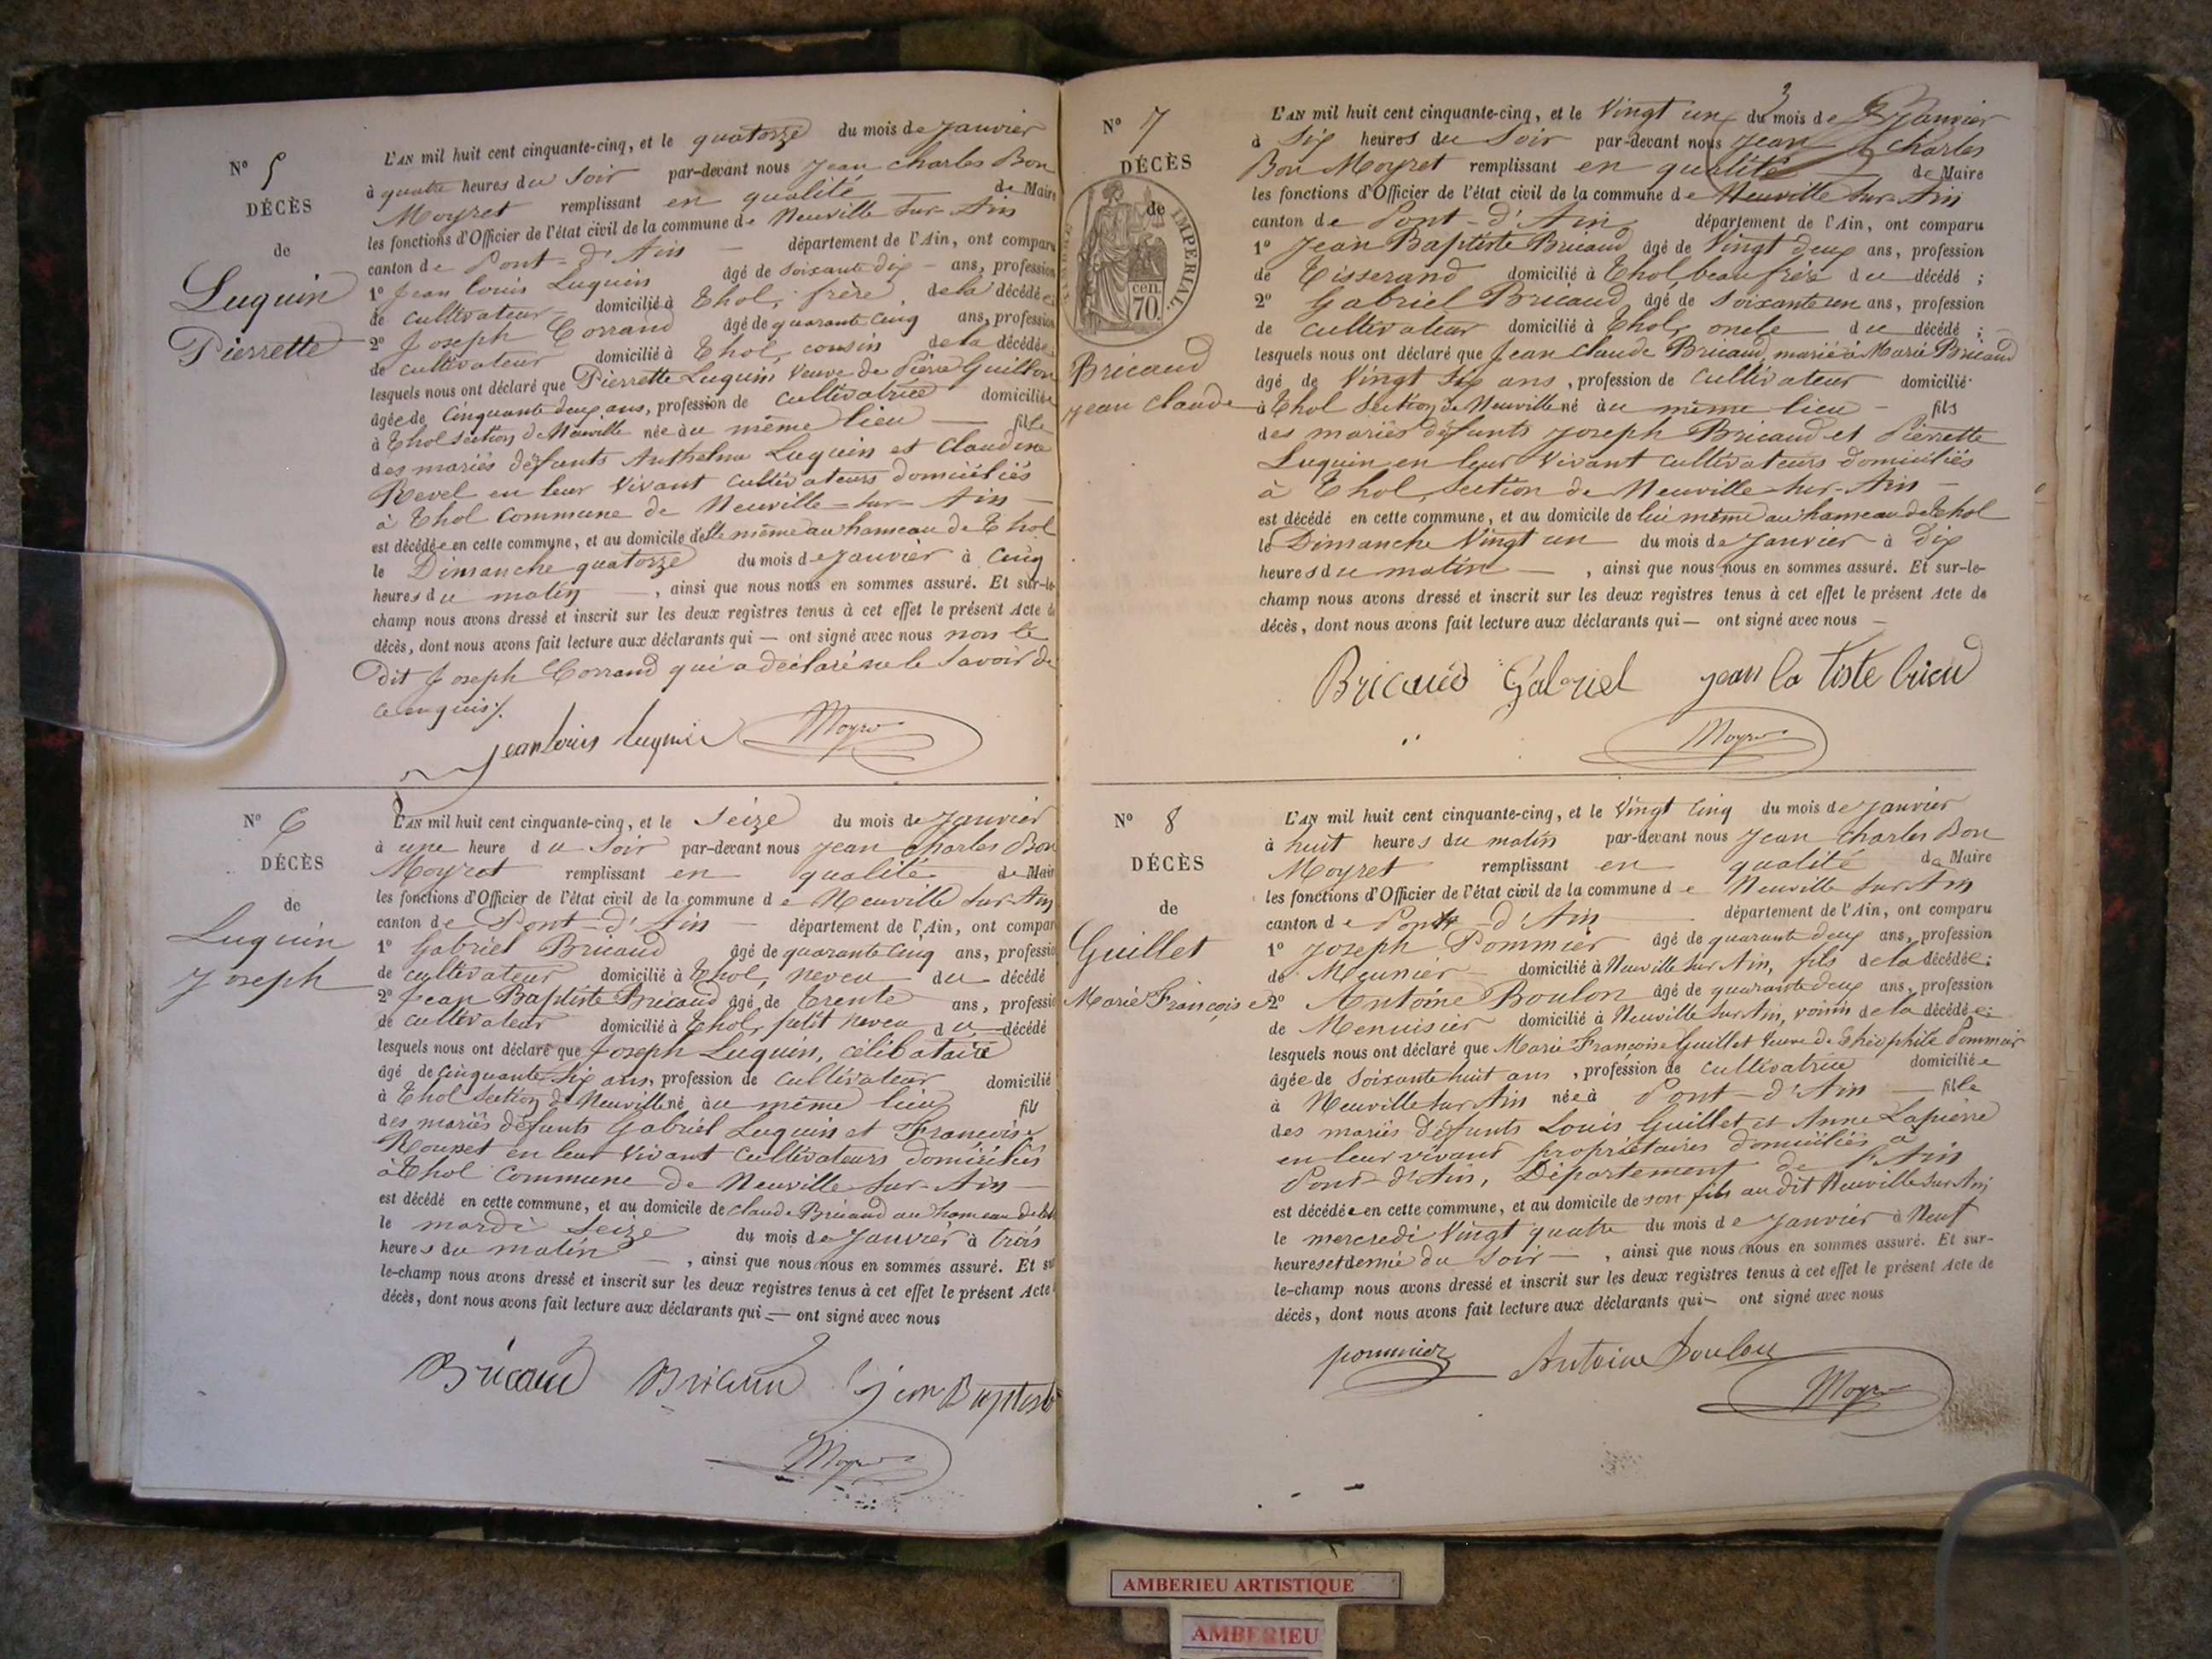 N° 5
DÉCÈS
de
Luquin
Pierrette
L'AN mil huit cent cinquante-cinq, et le quatorze du mois de Janvier
à quatre heures du Soir par-devant nous Jean Charles Bon
Moyret remplissant en qualité de Maire
les fonctions d'Officier de l'état civil de la commune de Neuville sur Ain
canton de Pont-d'Ain département de l'Ain, ont comparu
1° Jean Louis Luquin âgé de soixante dix ans, profession
de cultivateur domicilié à Thol, frère de la décédée
2° Joseph Corrand âgé de quarante cinq ans, profession
de cultivateur domicilié à Thol, cousin de la décédée
lesquels nous ont déclaré que Pierrette Luquin Veuve de Pierre Guillon
âgée de Cinquante deux ans, profession de Cultivatrice domiciliée
à Thol section de Neuville née au même lieu fille
des mariés défunts Anthelme Luquin et Claudine
Revel en leur Vivant Cultivateurs domiciliés
à Thol Commune de Neuville-sur-Ain
est décédée en cette commune, et au domicile d'elle même au hameau de Thol
le Dimanche quatorze du mois de Janvier à Cinq
heures du matin, ainsi que nous nous en sommes assuré. Et sur-le-
champ nous avons dressé et inscrit sur les deux registres tenus à cet effet le présent Acte de
décès, dont nous avons fait lecture aux déclarants qui — ont signé avec nous non le
Dit Joseph Corrand qui a déclaré ne le Savoir de
ce enquis /.
jean Louis luquin Moyret
N° 6
DÉCÈS
de
Luquin
Joseph
L'AN mil huit cent cinquante-cinq, et le Seize du mois de Janvier
à une heure du Soir par-devant nous Jean Charles Bon
Moyret remplissant en qualité de Maire
les fonctions d'Officier de l'état civil de la commune de Neuville sur Ain
canton de Pont-d'Ain département de l'Ain, ont comparu
1° Gabriel Bricaud âgé de quarante Cinq ans, profession
de cultivateur domicilié à Thol, neveu du décédé
2° Jean Baptiste Bricaud âgé de Trente ans, profession
de cultivateur domicilié à Thol, petit neveu du décédé
lesquels nous ont déclaré que Joseph Luquin, célibataire
âgé de Cinquante Six ans, profession de Cultivateur domicilié
à Thol Section de Neuville né au même lieu fils
des mariés défunts Gabriel Luquin et Francoise
Rousset en leur Vivant Cultivateurs domiciliés
à Thol Commune de Neuville sur-Ain
est décédé en cette commune, et au domicile de Claude Bricaud au hameau de Thol
le mardi Seize du mois de Janvier à trois
heures du matin, ainsi que nous nous en sommes assuré. Et sur
le-champ nous avons dressé et inscrit sur les deux registres tenus à cet effet le présent Acte
décès, dont nous avons fait lecture aux déclarants qui — ont signé avec nous
Bricaud Bricaud jean Baptiste
Moyret
3
N° 7
DÉCÈS
de
IMPÉRIAL
cen.
70.
Bricaud
Jean Claude
L'AN mil huit cent cinquante-cinq, et le Vingt un du mois de Janvier
à Six heures du Soir par-devant nous Jean Charles
Bon Moyret remplissant en qualité de Maire
les fonctions d'Officier de l'état civil de la commune de Neuville sur Ain
canton de Pont-d'Ain département de l'Ain, ont comparu
1° Jean Baptiste Bricaud âgé de Vingt deux ans, profession
de Tisserand domicilié à Thol, beau frère du décédé ;
2° Gabriel Bricaud âgé de soixante un ans, profession
de cultivateur domicilié à Thol, oncle du décédé ;
lesquels nous ont déclaré que Jean Claude Bricaud, marié à Marie Bricaud
âgé de Vingt Six ans, profession de Cultivateur domicilié
à Thol Section de Neuville né au même lieu fils
des mariés défunts Joseph Bricaud et Pierrette
Luquin en leur Vivant Cultivateurs domiciliés
à Thol, Section de Neuville-sur-Ain
est décédé en cette commune, et au domicile de lui même au hameau de Thol
le Dimanche Vingt un du mois de Janvier à Dix
heures du matin, ainsi que nous nous en sommes assuré. Et sur-le-
champ nous avons dressé et inscrit sur les deux registres tenus à cet effet le présent Acte de
décès, dont nous avons fait lecture aux déclarants qui — ont signé avec nous
Bricaud Gabriel jean
Moyret
N° 8
DÉCÈS
de
Guillet
Marie Françoise
L'AN mil huit cent cinquante-cinq, et le Vingt Cinq du mois de Janvier
à huit heures du matin par-devant nous Jean Charles Bon
Moyret remplissant en qualité de Maire
les fonctions d'Officier de l'état civil de la commune de Neuville sur Ain
canton de Pont-d'Ain département de l'Ain, ont comparu
1° Joseph Pommier âgé de quarante deux ans, profession
de Meunier domicilié à Neuville sur Ain, fils de la décédée ;
2° Antoine Boulon âgé de quarante deux ans, profession
de Menuisier domicilié à Neuville sur Ain, voisin de la décédée ;
lesquels nous ont déclaré que Marie Françoise Guillet Veuve de Théophile Pommier
âgée de Soixante huit ans, profession de Cultivatrice domiciliée
à Neuville sur Ain née à Pont-d'Ain fille
des mariés défunts Louis Guillet et Anne Lapierre
en leur vivant propriétaires domiciliés à
Pont-d'Ain, Département de l'Ain
est décédée en cette commune, et au domicile de son fils au dit Neuville sur Ain
le mercredi Vingt quatre du mois de Janvier à Neuf
heures et demie du Soir, ainsi que nous nous en sommes assuré. Et sur-
le-champ nous avons dressé et inscrit sur les deux registres tenus à cet effet le présent Acte de
décès, dont nous avons fait lecture aux déclarants qui ont signé avec nous
pommier Antoine Boulon
Moyret
AMBERIEU ARTISTIQUE
AMBERIEU